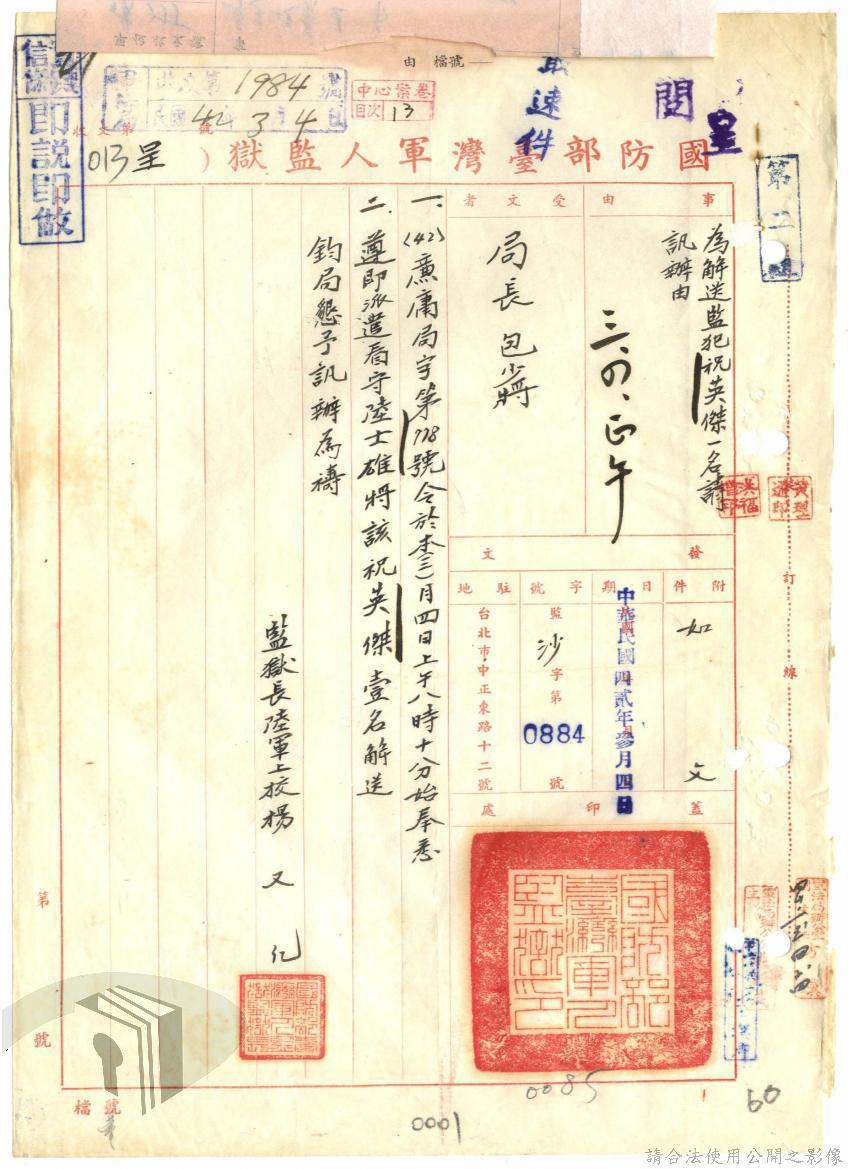 檔號
由
收文第
號
1984
民國42年3月4日
中心案卷
目次 13
最速件
閱
呈
信
即說即做
第二
國防部臺灣軍人監獄(呈
013
事由
為解送監犯祝英傑一名請
訊辦由
三、四、正午
受文者
局長 包少將
附件
如文
發文
日期
中華民國四貳年參月四日
字號
監沙字第
0884
號
駐地
台北市中正東路十二號
蓋印處
國防部臺灣軍人監獄印
一、(42)廉庸局字第778號令於本(三)月四日上午八時十分始奉悉
二、遵即派遣看守陸士雄將該祝英傑壹名解送
鈞局懇予訊辦為禱
監獄長陸軍上校楊又凡
訂線
第號
檔號
0085
0001
60
請合法使用公開之影像